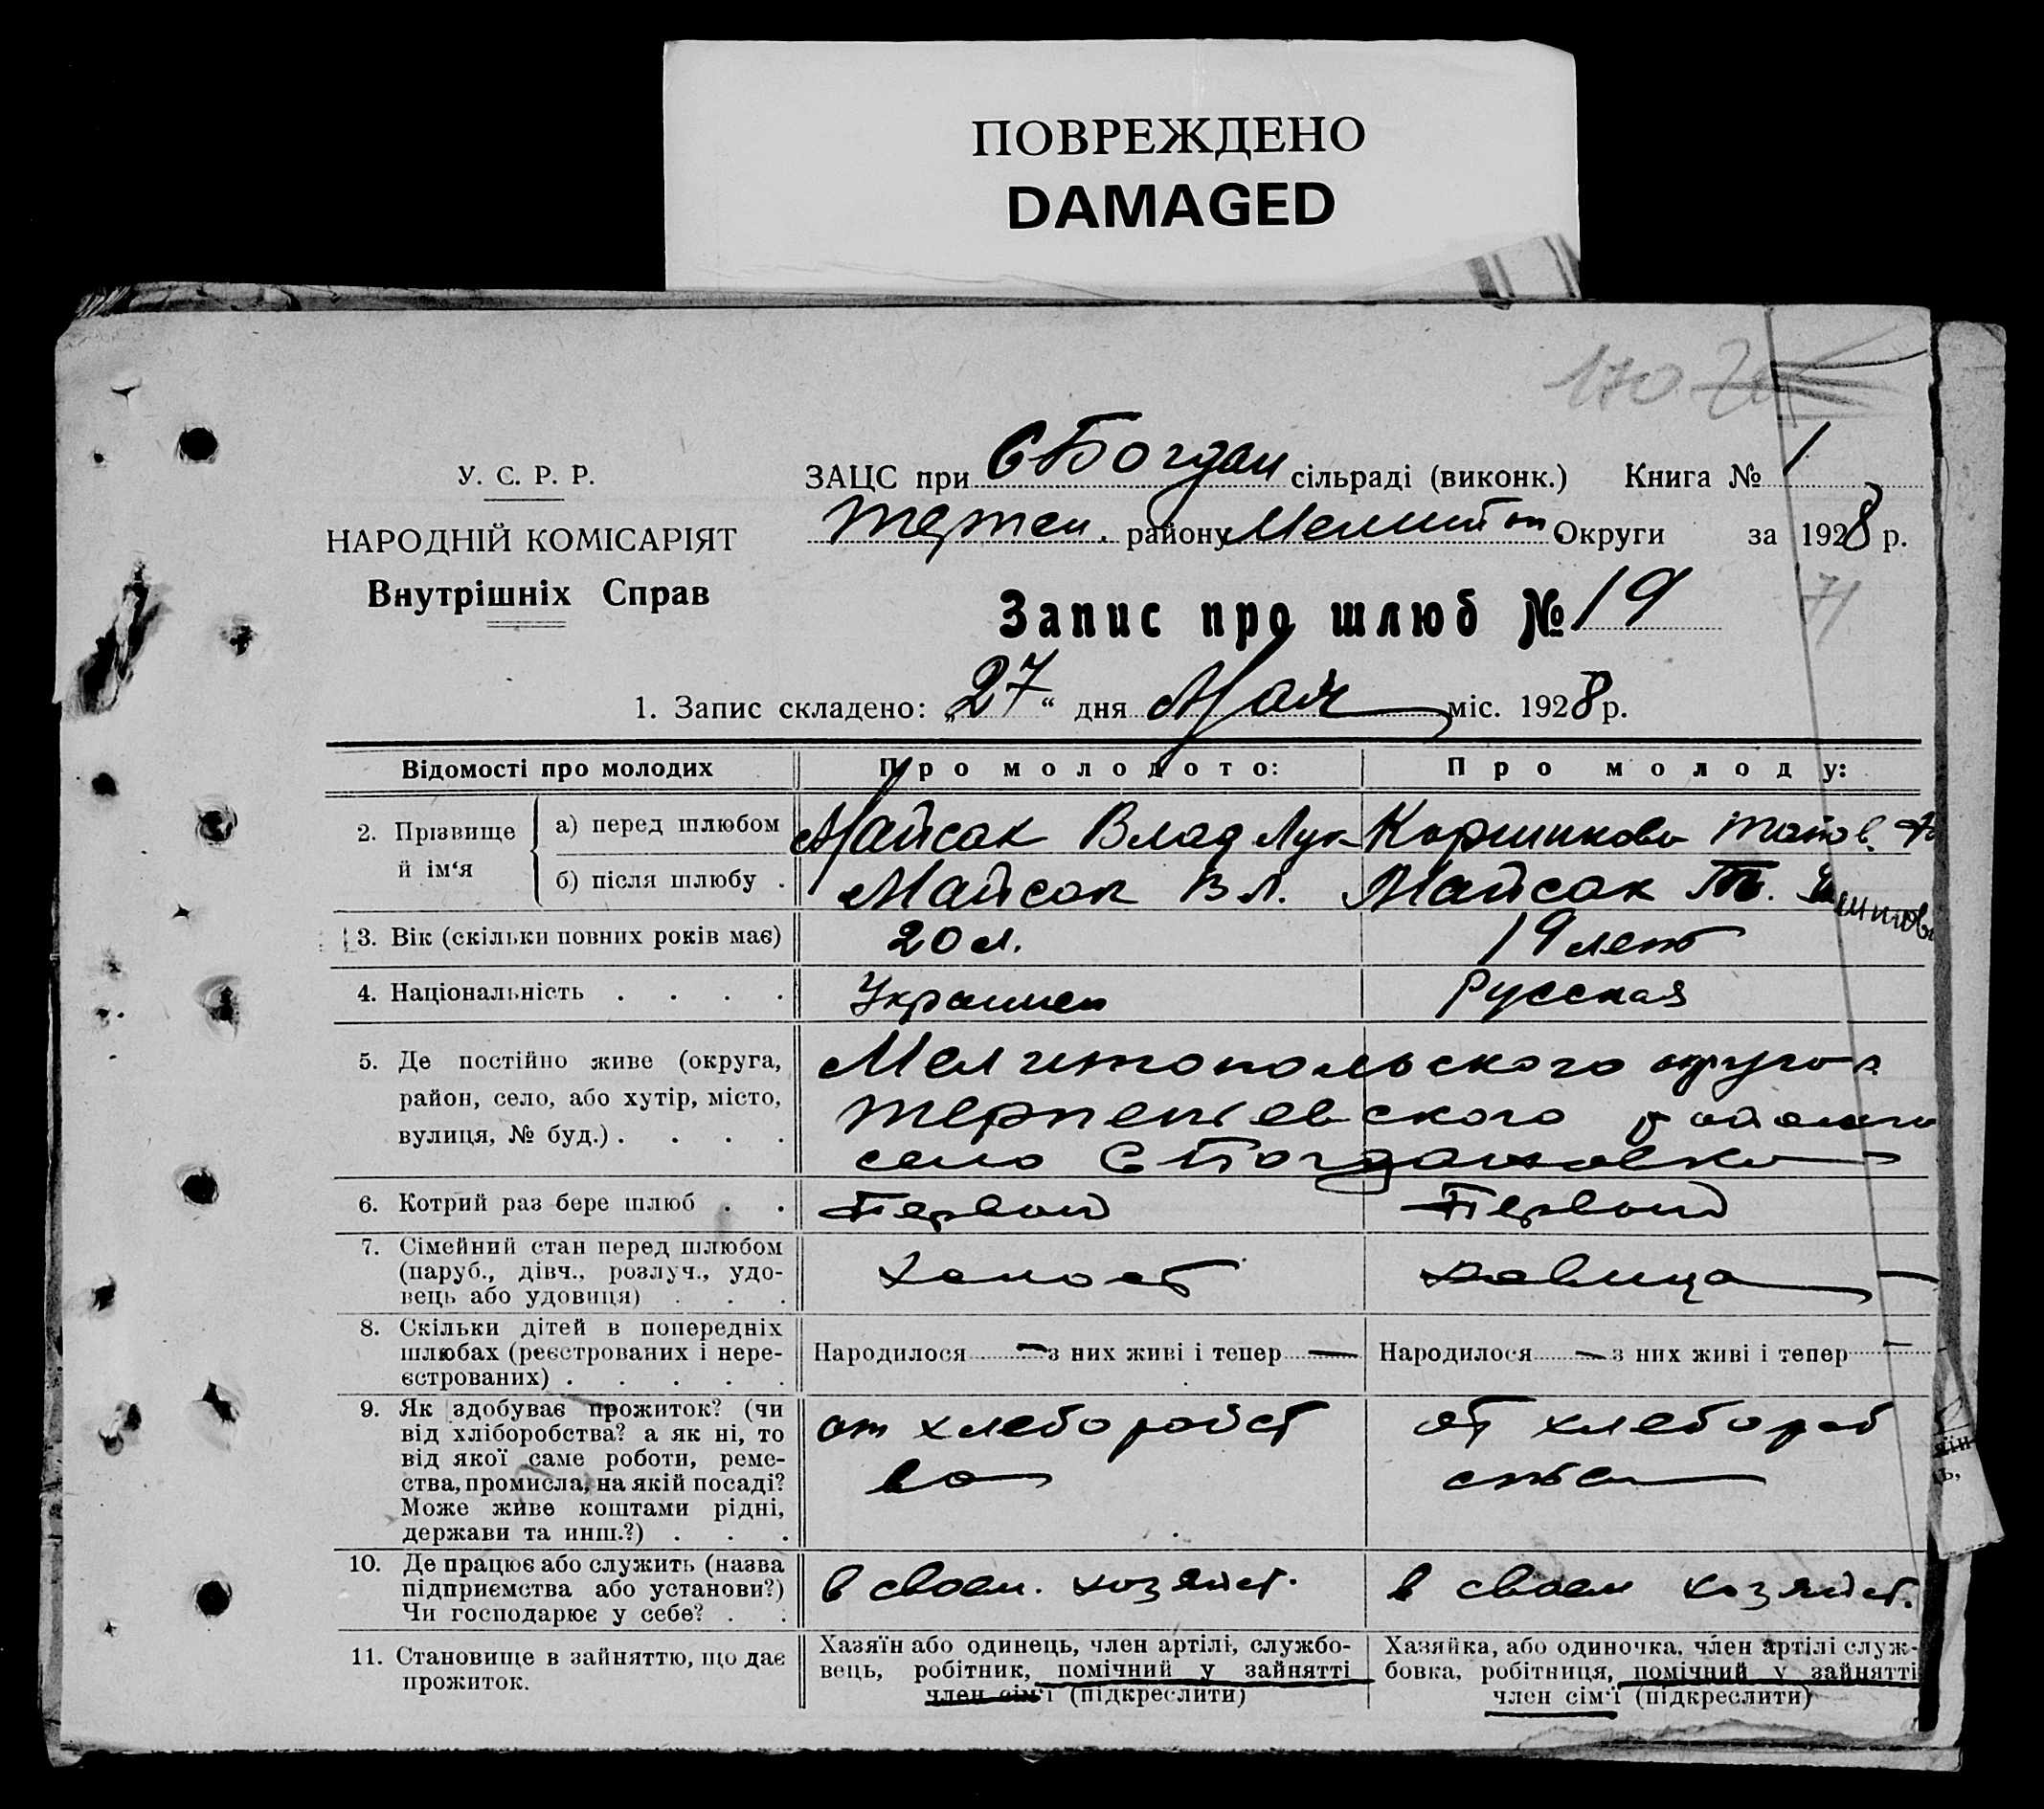 ПОВРЕЖДЕНО
DAMAGED
170
У. С. Р. Р.
НАРОДНІЙ КОМІСАРІЯТ
Внутрішніх Справ
ЗАЦС при СБогдан сільраді (виконк.) Книга № 1
Терпен. району Мелитоп Округи за 1928 р.
71
Запис про шлюб № 19
1. Запис складено: „27“ дня Мая міс. 1928 р.
Відомості про молодих Про молодого: Про молоду:
2. Прізвище й ім‘я
а) перед шлюбом Майсак Влад Лук Коршикова
б) після шлюбу . Майсак Вл. Майсак Т.
3. Вік (скільки повних років має) 20 л. 19 лет
4. Національність . . . . Украинец Русская
5. Де постійно живе (округа, Мелитопольского округа
район, село, або хутір, місто, Терпеньевского района
вулиця, № буд.) . . . . село СБогдановка
6. Котрий раз бере шлюб . . Первый Первый
7. Сімейний стан перед шлюбом
(паруб., дівч., розлуч., удо-
вець або удовиця) . . . Холост девица
8. Скільки дітей в попередніх
шлюбах (реєстрованих і нере-
єстрованих) . . . . .
Народилося — з них живі і тепер — Народилося — з них живі і тепер —
9. Як здобуває прожиток? (чи
від хліборобства? а як ні, то
від якої саме роботи, реме-
ства, промисла, на якій посаді?
Може живе коштами рідні,
держави та инш.?) . . .
от хлеборойст
во
от хлебороб
ства
10. Де працює або служить (назва
підприємства або установи?)
Чи господарює у себе? . .
в своем. хозяйст. в своем хозяйст.
11. Становище в зайняттю, що дає
прожиток.
Хазяїн або одинець, член артілі, службо-
вець, робітник, помічний у зайнятті
член сім‘ї (підкреслити)
Хазяйка, або одиночка, член артілі служ-
бовка, робітниця, помічний у зайнятті
член сім‘ї (підкреслити)